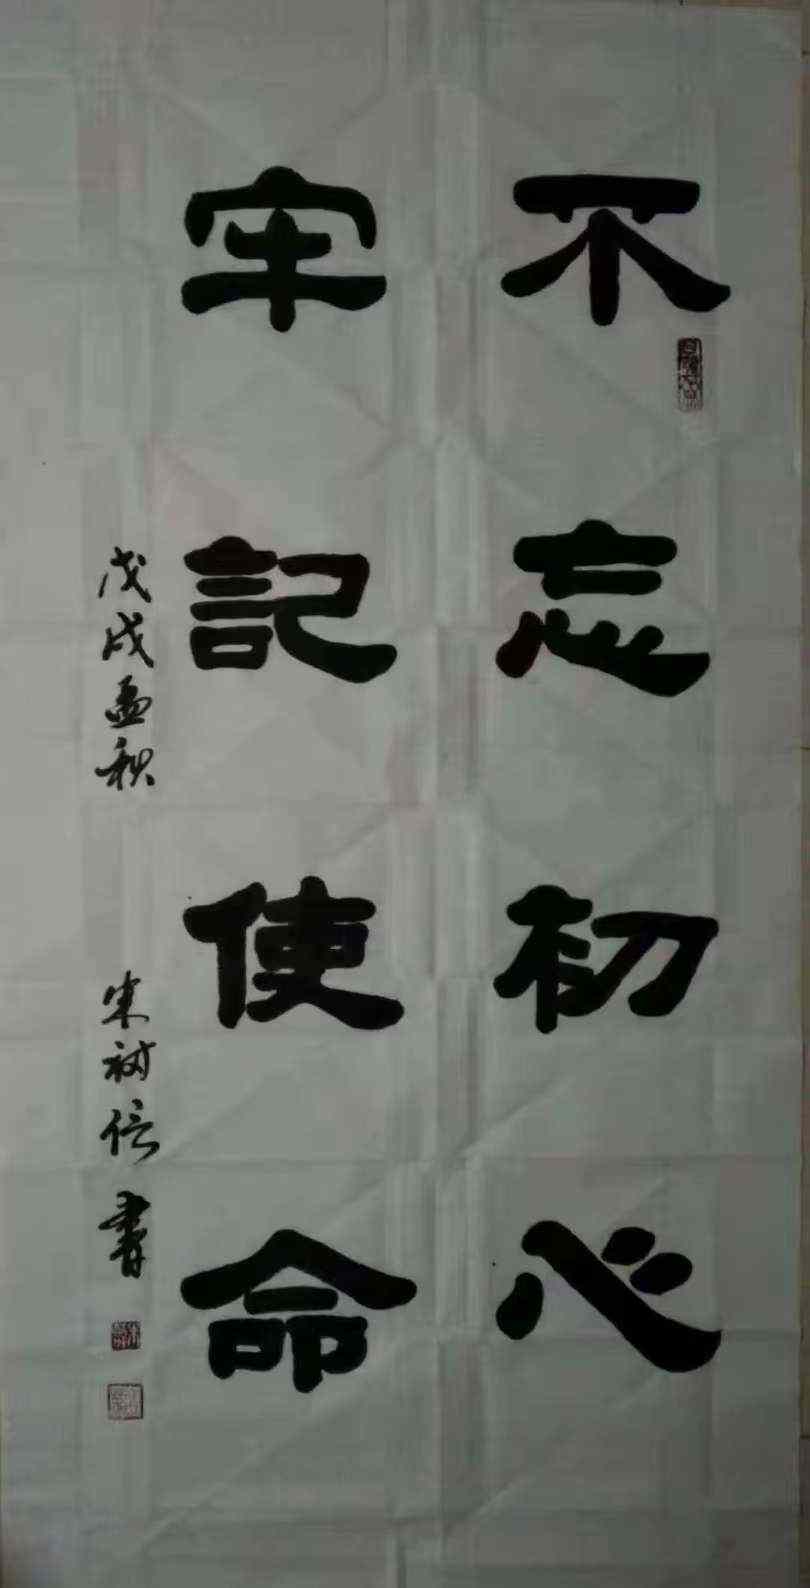 不忘初心
牢記使命
戊戌孟秋
朱树信書